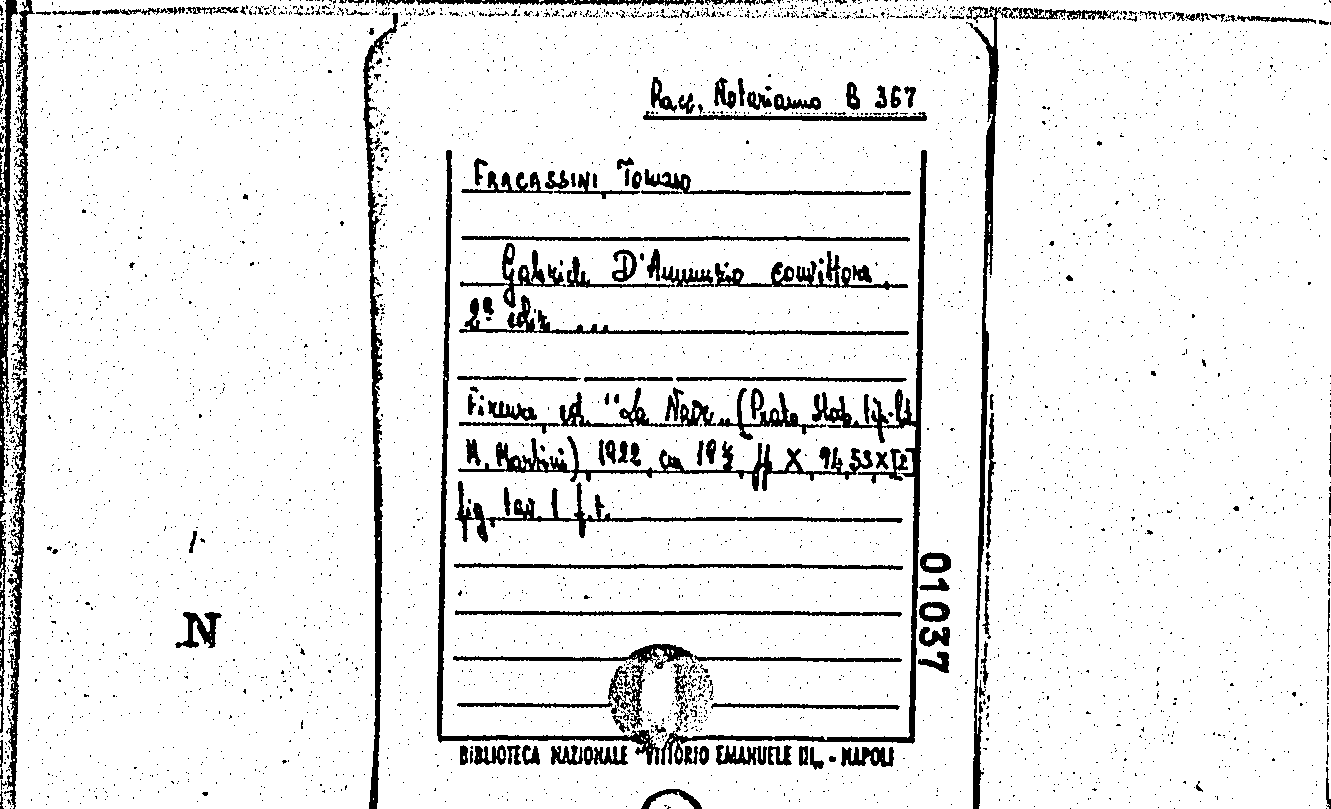 Racc. Notarianno B 367
FRACASSINI, Tomaso
Gabriele D'Annunzio convittore.
2ª ediz. ...
Firenze, ed. "La Nave„ (Prato, Stab. Tip. Lit.
M. Martini), 1922, cm 19½, pp X, 94,
fig. tav. 1 f.t.
01037
N
BIBLIOTECA NAZIONALE "VITTORIO EMANUELE III„ - NAPOLI